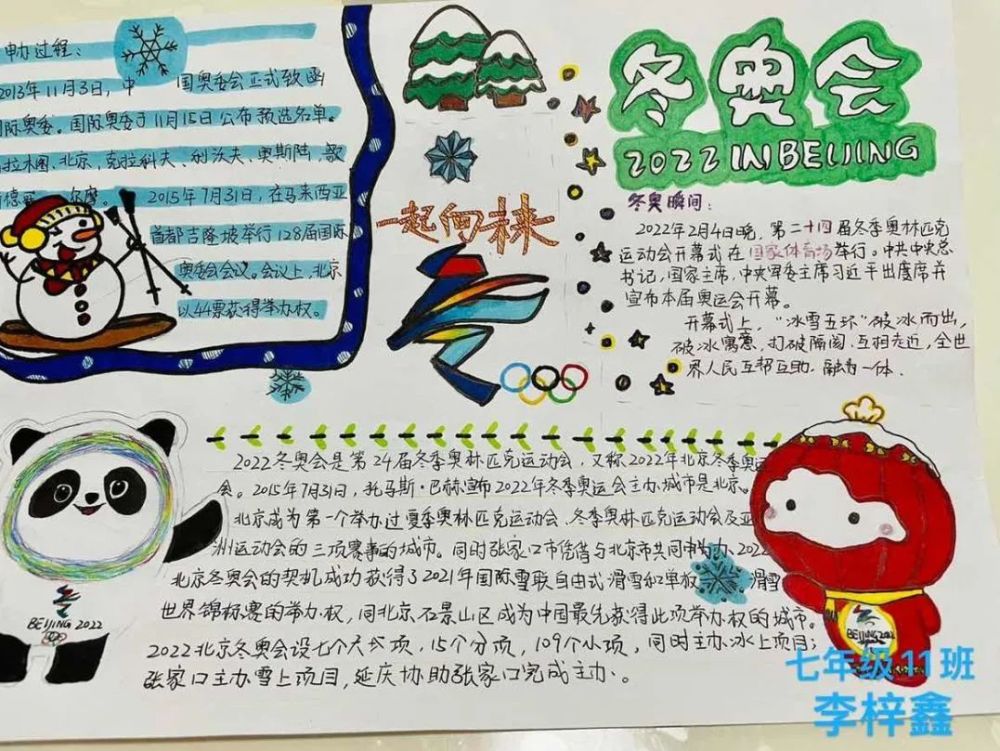 申办过程：
2013年11月3日，中 国奥委会正式致函
国际奥委。国际奥委于11月15日公布预选名单。
拉木图、北京、克拉科夫、利沃夫、奥斯陆、歌
2015年7月31日，在马来西亚
首都吉隆坡举行128届国际
奥委会会议。会议上，北京
以44票获得举办权。
一起向未来
冬奥会
2022 IN BEIJING
冬奥瞬间：
2022年2月4日晚，第二十四届冬季奥林匹克
运动会开幕式在国家体育场举行。中共中央总
书记，国家主席，中央军委主席习近平出席开
宣布本届奥运会开幕。
开幕式上，“冰雪五环”破冰而出，
破冰寓意，打破隔阂、互相走近，全世
界人民互帮互助，融为一体．
2022冬奥会是第24届冬季奥林匹克运动会，又称2022年北京冬季奥运
会。2015年7月31日，托马斯·巴赫宣布2022年冬季奥运会主办城市是北京。
北京成为第一个举办过夏季奥林匹克运动会、冬季奥林匹克运动会及亚
洲运动会的三项赛事的城市。同时张家口市凭借与北京市共同申办2022
北京冬奥会的契机成功获得了2021年国际雪联自由式滑雪和单板 滑雪
世界锦标赛的举办权，同北京石景山区成为中国最先获得此项举办权的城市。
2022北京冬奥会设七个大项，15个分项，109个小项，同时主办冰上项目；
张家口主办雪上项目，延庆协助张家口完成主办。
BEIJING 2022
BEIJING 2022
七年级11班
李梓鑫